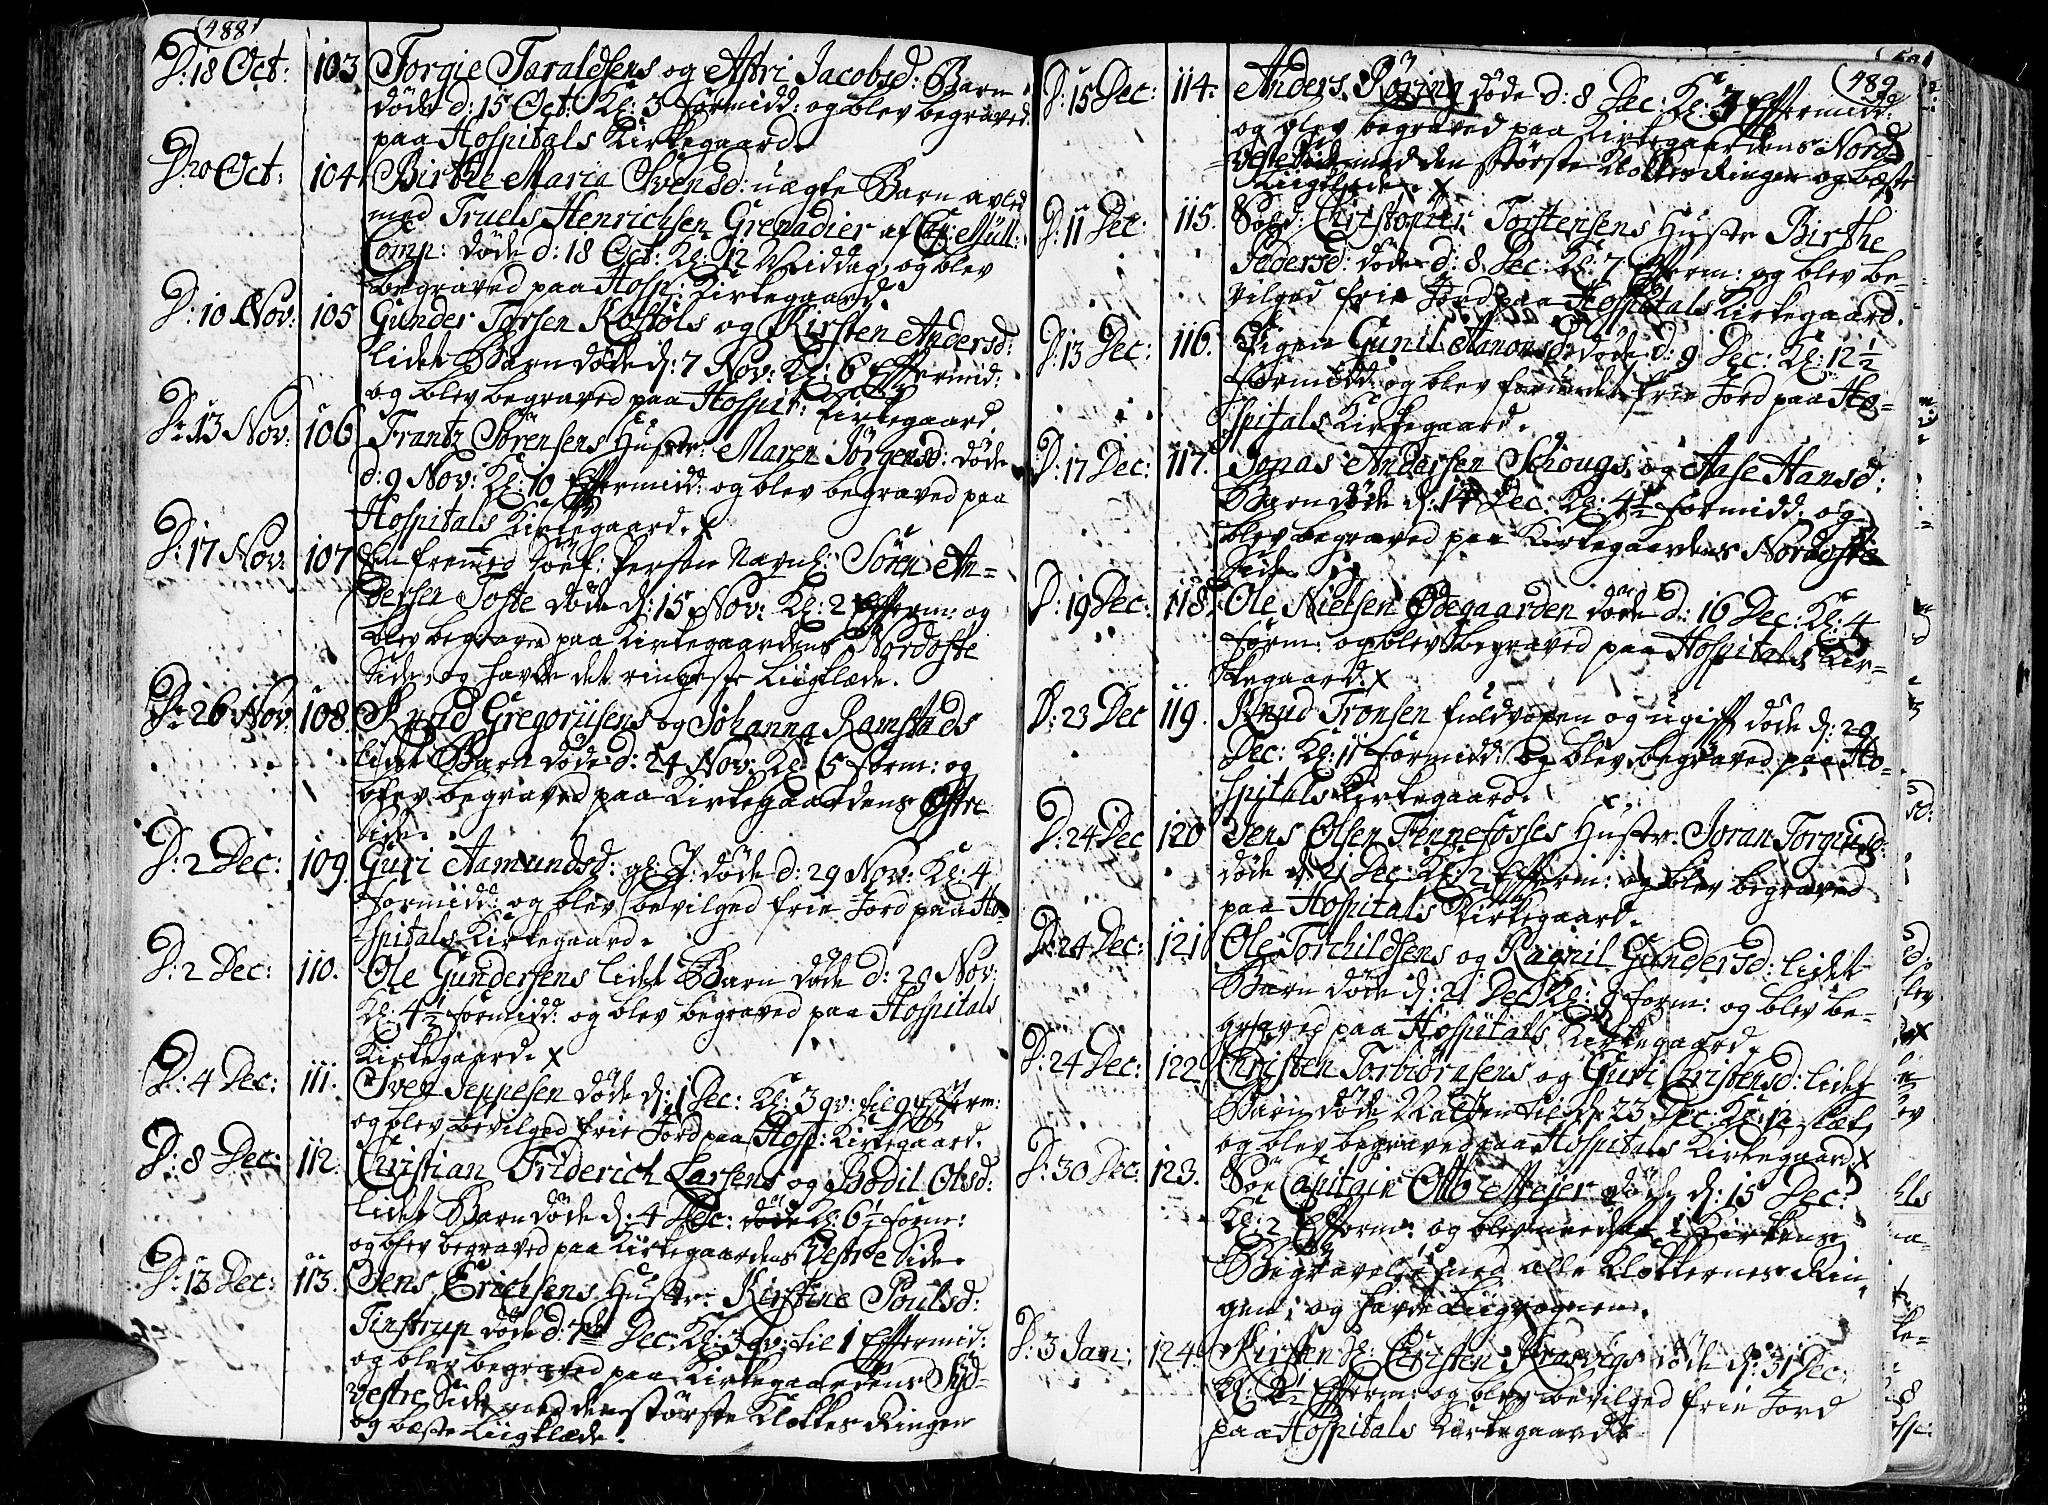 488
D: 18 Oct: 103 Torgie Taraldsens og Astri Jacobsd: Barn
døde d: 15 Oct: Kl: 3 formidd: og blev begraved
paa Hospitals Kirkegaard.
D: 20 Oct: 104 Birthe Maria Svensd: uægte Barn avled
med Truels Henrichsen Grenadier af Cap: Müll:
Comp: døde d: 18 Oct: Kl: 12 Middag, og blev
begraved paa Hosp: Kirkegaard.
D: 10 Nov: 105 Gunder Torsen Rostøls og Kirsten Andersd:
lidet Barn døde d: 7 Nov: Kl: 6 Eftermid:
og blev begraved paa Hospit: Kirkegaard.
D: 13 Nov: 106 Frantz Sørensens Hustr: Maren Jørgensd: døde
d: 9 Nov: Kl: 10 Eftermidd: og blev begraved paa
Hospitals Kirkegaard. x
D: 17 Nov: 107 En fremmed Søef: Person Navnl: Søren An=
dersen Toste døde d: 15 Nov: Kl: 2 Efterm: og
blev begraven paa Kirkegaardens Nordoste
Side, og havde det ringeste Liigklæde.
D: 26 Nov: 108. Knud Gregoriisens og Johanna Ramstads
lidet Barn døde d: 24 Nov: Kl: 5 form: og
blev begraved paa Kirkegaardens Østre
Side.
D: 2 Dec: 109. Guri Aamundsd: gl: P: døde d: 29 Nov: Kl: 4
formidd: og blev bevilged frie Jord paa Ho=
spitals Kirkegaard.
D: 2 Dec: 110. Ole Gundersens lidet Barn døde d: 29 Nov:
Kl: 4 1/2 formidd: og blev begraved paa Hospitals
Kirkegaard. x
D: 4 Dec: 111. Sven Jeppesen døde d: 1 Dec: Kl: 3 qv: til 9 Efterm:
og blev bevilged frie Jord paa Hosp: Kirkegaard.
D: 8 Dec: 112. Christian Friderich Larsens og Bodil Olsd:
lidet Barn døde d: 4 Dec: døde Kl: 6 1/2 form:
og blev begraved paa Kirkegaardens Vestre Side.
D: 13 Dec: 113. Jens Erichsens Hustr: Kirstine Poulsd:
Tinstrup døde d: 7de Dec: Kl: 3 qv: til 1 Eftermid:
og blev begraved paa Kirkegaardens Syd=
vestre Side med den største Klokkes Ringen
og bæste Liigklæde.
489
D: 15 Dec: 114. Anders Røring døde d: 8 Dec: Kl: 3 Eftermidd:
og blev begraved paa Kirkegaardens Nord=
veste Side med den største Klokkes Ringen og bæste
Liigklæde. x
D: 11 Dec: 115. Sold: Christopher Torstensens Hustr Birthe
Pedersd: døde d: 8 Dec: Kl: 7 Efterm: og blev be=
vilged frie Jord paa Hospitals Kirkegaard.
D: 13 Dec: 116. Pigen Gunil Aanonsd: døde d: 9 Dec: Kl: 12 1/2
formidd: og blev forundt frie Jord paa Ho=
spitals Kirkegaard.
D: 17 Dec: 117. Jonas Andersen Schougs og Aase Hansd:
Barn døde d: 14 Dec: Kl: 4 1/2 formidd: og
blev begraved paa Kirkegaardens Nordoste
Side.
D: 19 Dec: 118. Ole Nielsen Ødegaarden døde d: 16 Dec: Kl: 4
form: og blev begraved paa Hospitals Kir=
kegaard. x
D: 23 Dec 119. Knud Tronsen fuldvoxen og ugift døde d: 20
Dec: Kl: 11 formidd: og blev begraved paa Ho=
spitals Kirkegaard.
D: 24 Dec 120 Jens Olsen Fennefosses Hustr. Joran Torgiusd:
døde d: 21 Dec: Kl: 2 Efterm: og blev begraved
paa Hospitals Kirkegaard.
D: 24 Dec: 121 Ole Torchildsens og Ragnil Gundersd: lidet
Barn døde d: 21 Dec: Kl: 8 form: og blev be=
graved paa Hospitals Kirkegaard.
D: 24 Dec: 122 Christen Torbiørnsens og Guri Christensd: lidet
Barn døde Natten til d: 23 Dec: Kl: 12 slæt,
og blev begraved paa Hospitals Kirkegaard x
D: 30 Dec: 123. Søe Capitain Otto Mejer døde d: 15 Dec:
Kl: 2 Efterm: og blev nedsat i Kirkens
Begravelse med alle Klokkernes Rin=
gen, og havde Liigvognen.
D: 3 Jan: 124. Kirsten Christen døde d: 31 Dec:
Efterm: og blev bevilged frie Jord
paa Hospitals Kirkegaard